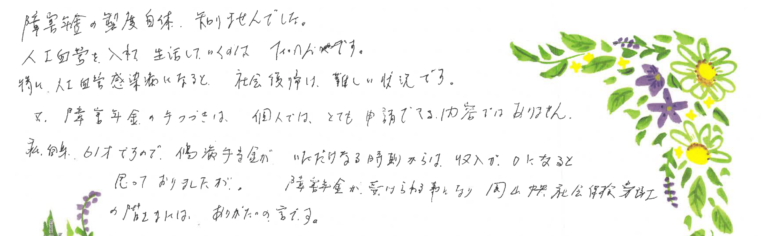 障害年金の制度自体、知りませんでした。
人工血管を入れて生活していくのは です。
特に、人工血管感染病になると 社会復帰は、難しい状況です。
又、障害年金の手つづきは、個人では、とても申請できる内容ではありません。
私自身、61才ですので、 いただける時期からは、収入が、0になると
思っておりましたが。 障害年金が、受けられる事になり 岡山県社会保険労務士
の皆さまには、ありがたいの一言です。